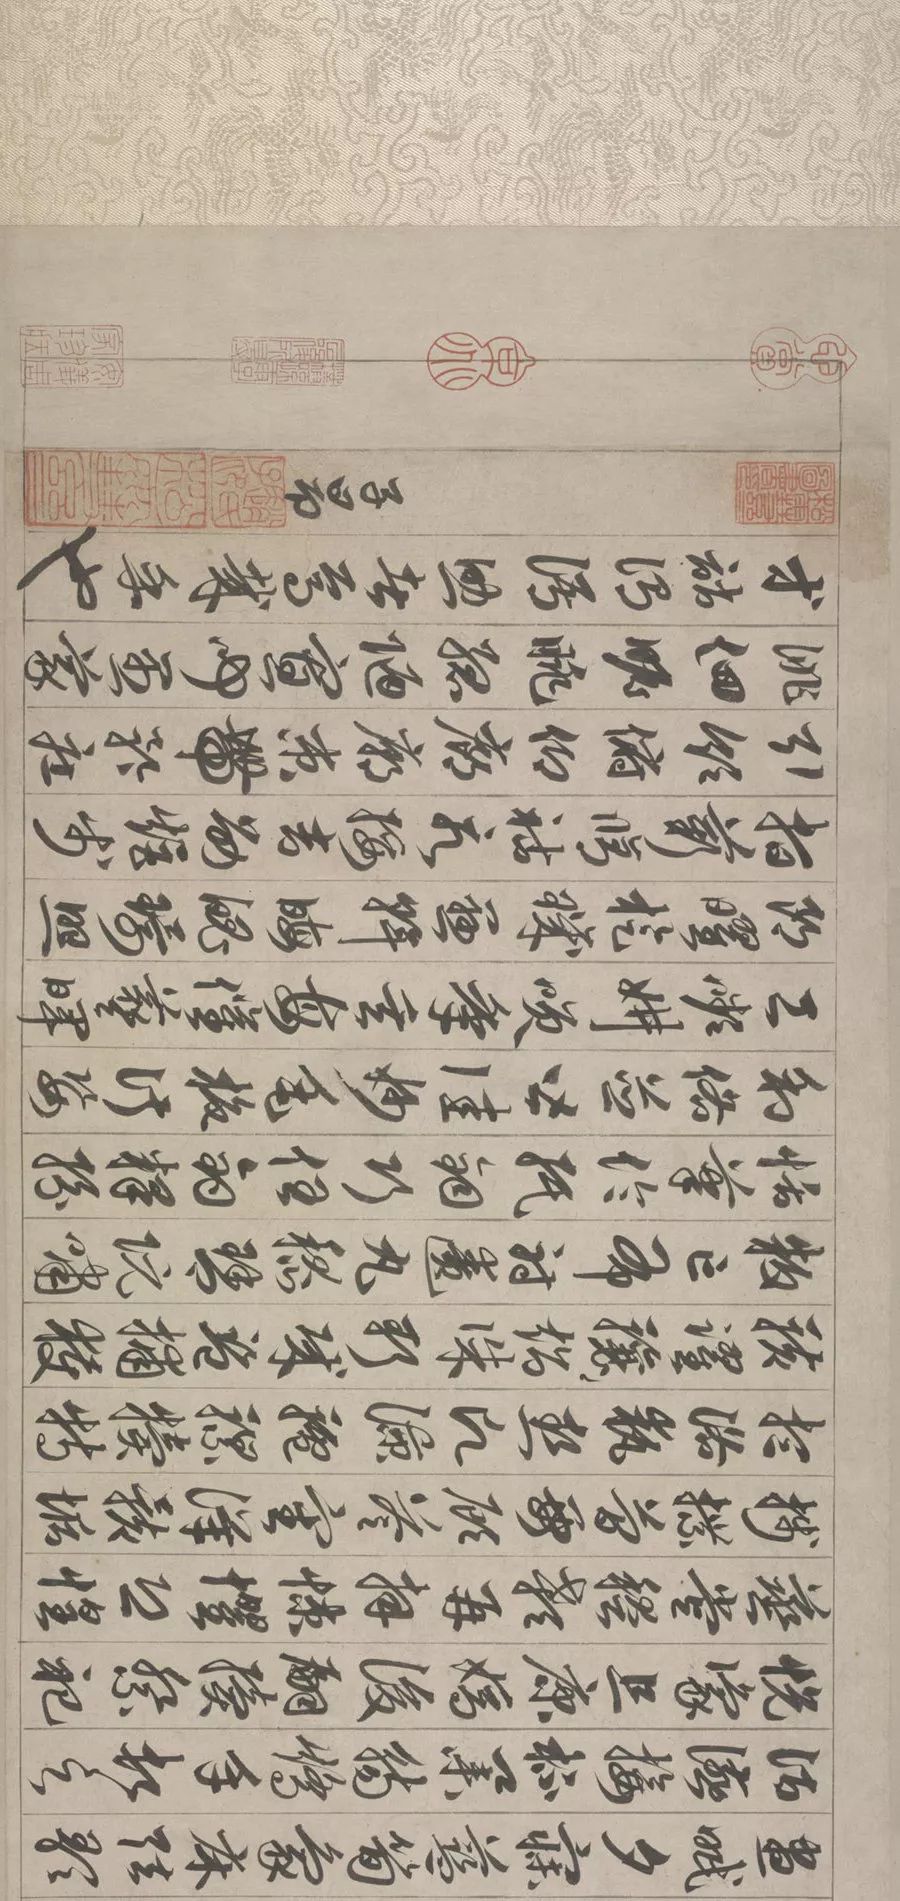 晝眠夕寐藍筍象床弦歌
酒讌接杯舉觴矯手頓足
悅豫且康嫡後嗣續祭祀
蒸嘗稽顙再拜悚懼恐惶
牋牒簡要顧答審詳骸垢
想浴執熱願涼驢騾犢特
駭躍超驤誅斬賊盜捕獲
叛亡布射遼丸嵇琴阮嘯
恬筆倫紙鈞巧任釣釋紛
利俗並皆佳妙毛施淑姿
工嚬妍笑年矢每催羲暉
朗曜璇璣懸斡晦魄環照
指薪修祜永綏吉劭矩步
引領俯仰廊廟束帶矜莊
徘徊瞻眺孤陋寡聞愚蒙
等誚謂語助者焉哉乎也
子昂